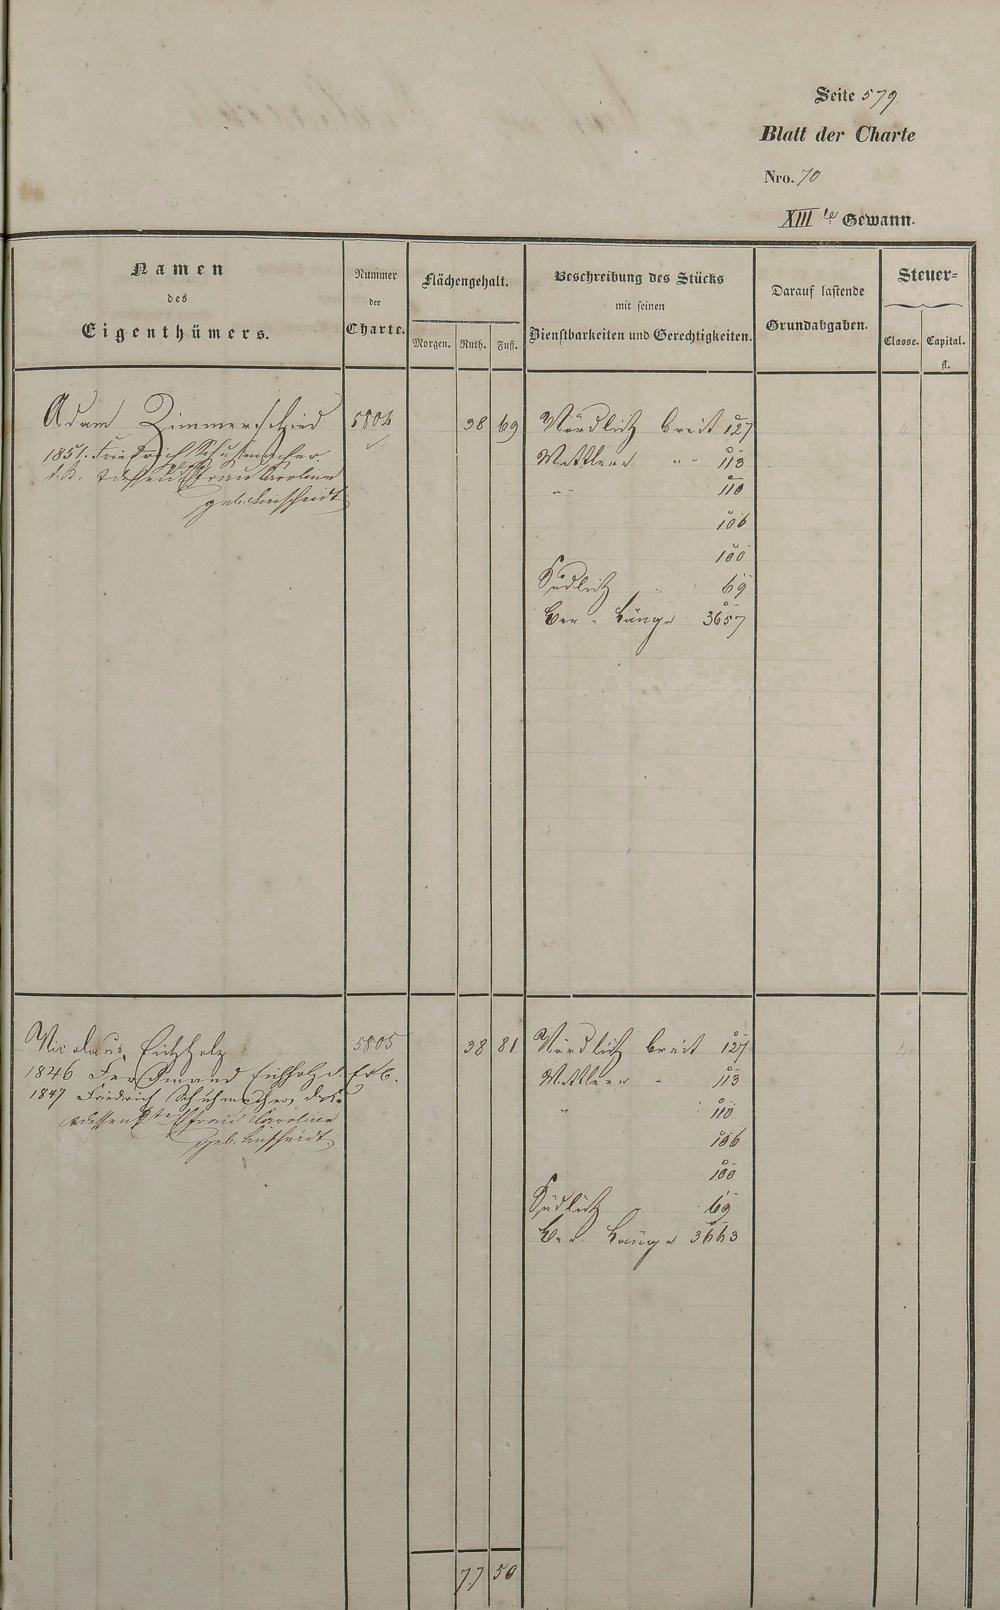 Seite 579
Blatt der Charte
Nro. 70
XIII te Gewann.
Namen
des
Eigenthümers.
Nummer
der
Charte.
Flächengehalt.
Morgen. Ruth. Fuß.
Beschreibung des Stücks
mit seinen
Dienstbarkeiten und Gerechtigkeiten.
Darauf lastende
Grundabgaben.
Steuer-
Classe. Capital.
fl.
Adam Zimmerschied 5804 38 69 Nördlich breit 127
1851. Friedrich Schuhmacher Mittlere " 113
d. K. u dessen Ehefrau Caroline " 110
geb.
106
100
Südlich 69
Ber. Länge 3657
Nicolaus Eichholz 5805 38 81 Nördlich breit 127
1846 Ferdinand Eichholz d. Erb. Mittlere " 113
1847 Friedrich Schuhmacher d. K. " 110
u dessen Ehefrau Caroline
geb. 106
100
Südlich 69
Ber. Länge 3663
77 50